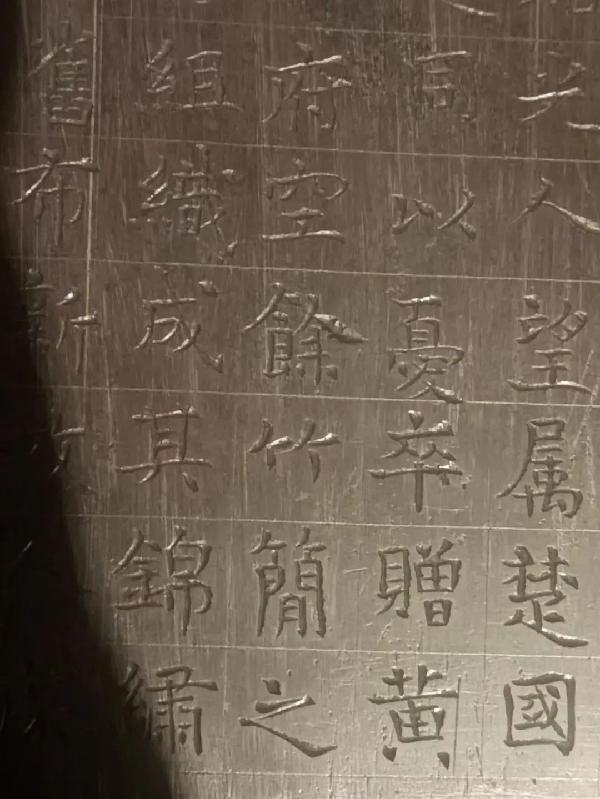 夫人望属楚國
周以憂卒贈黄
府空餘竹簡之
組織成其錦繡
舊布新